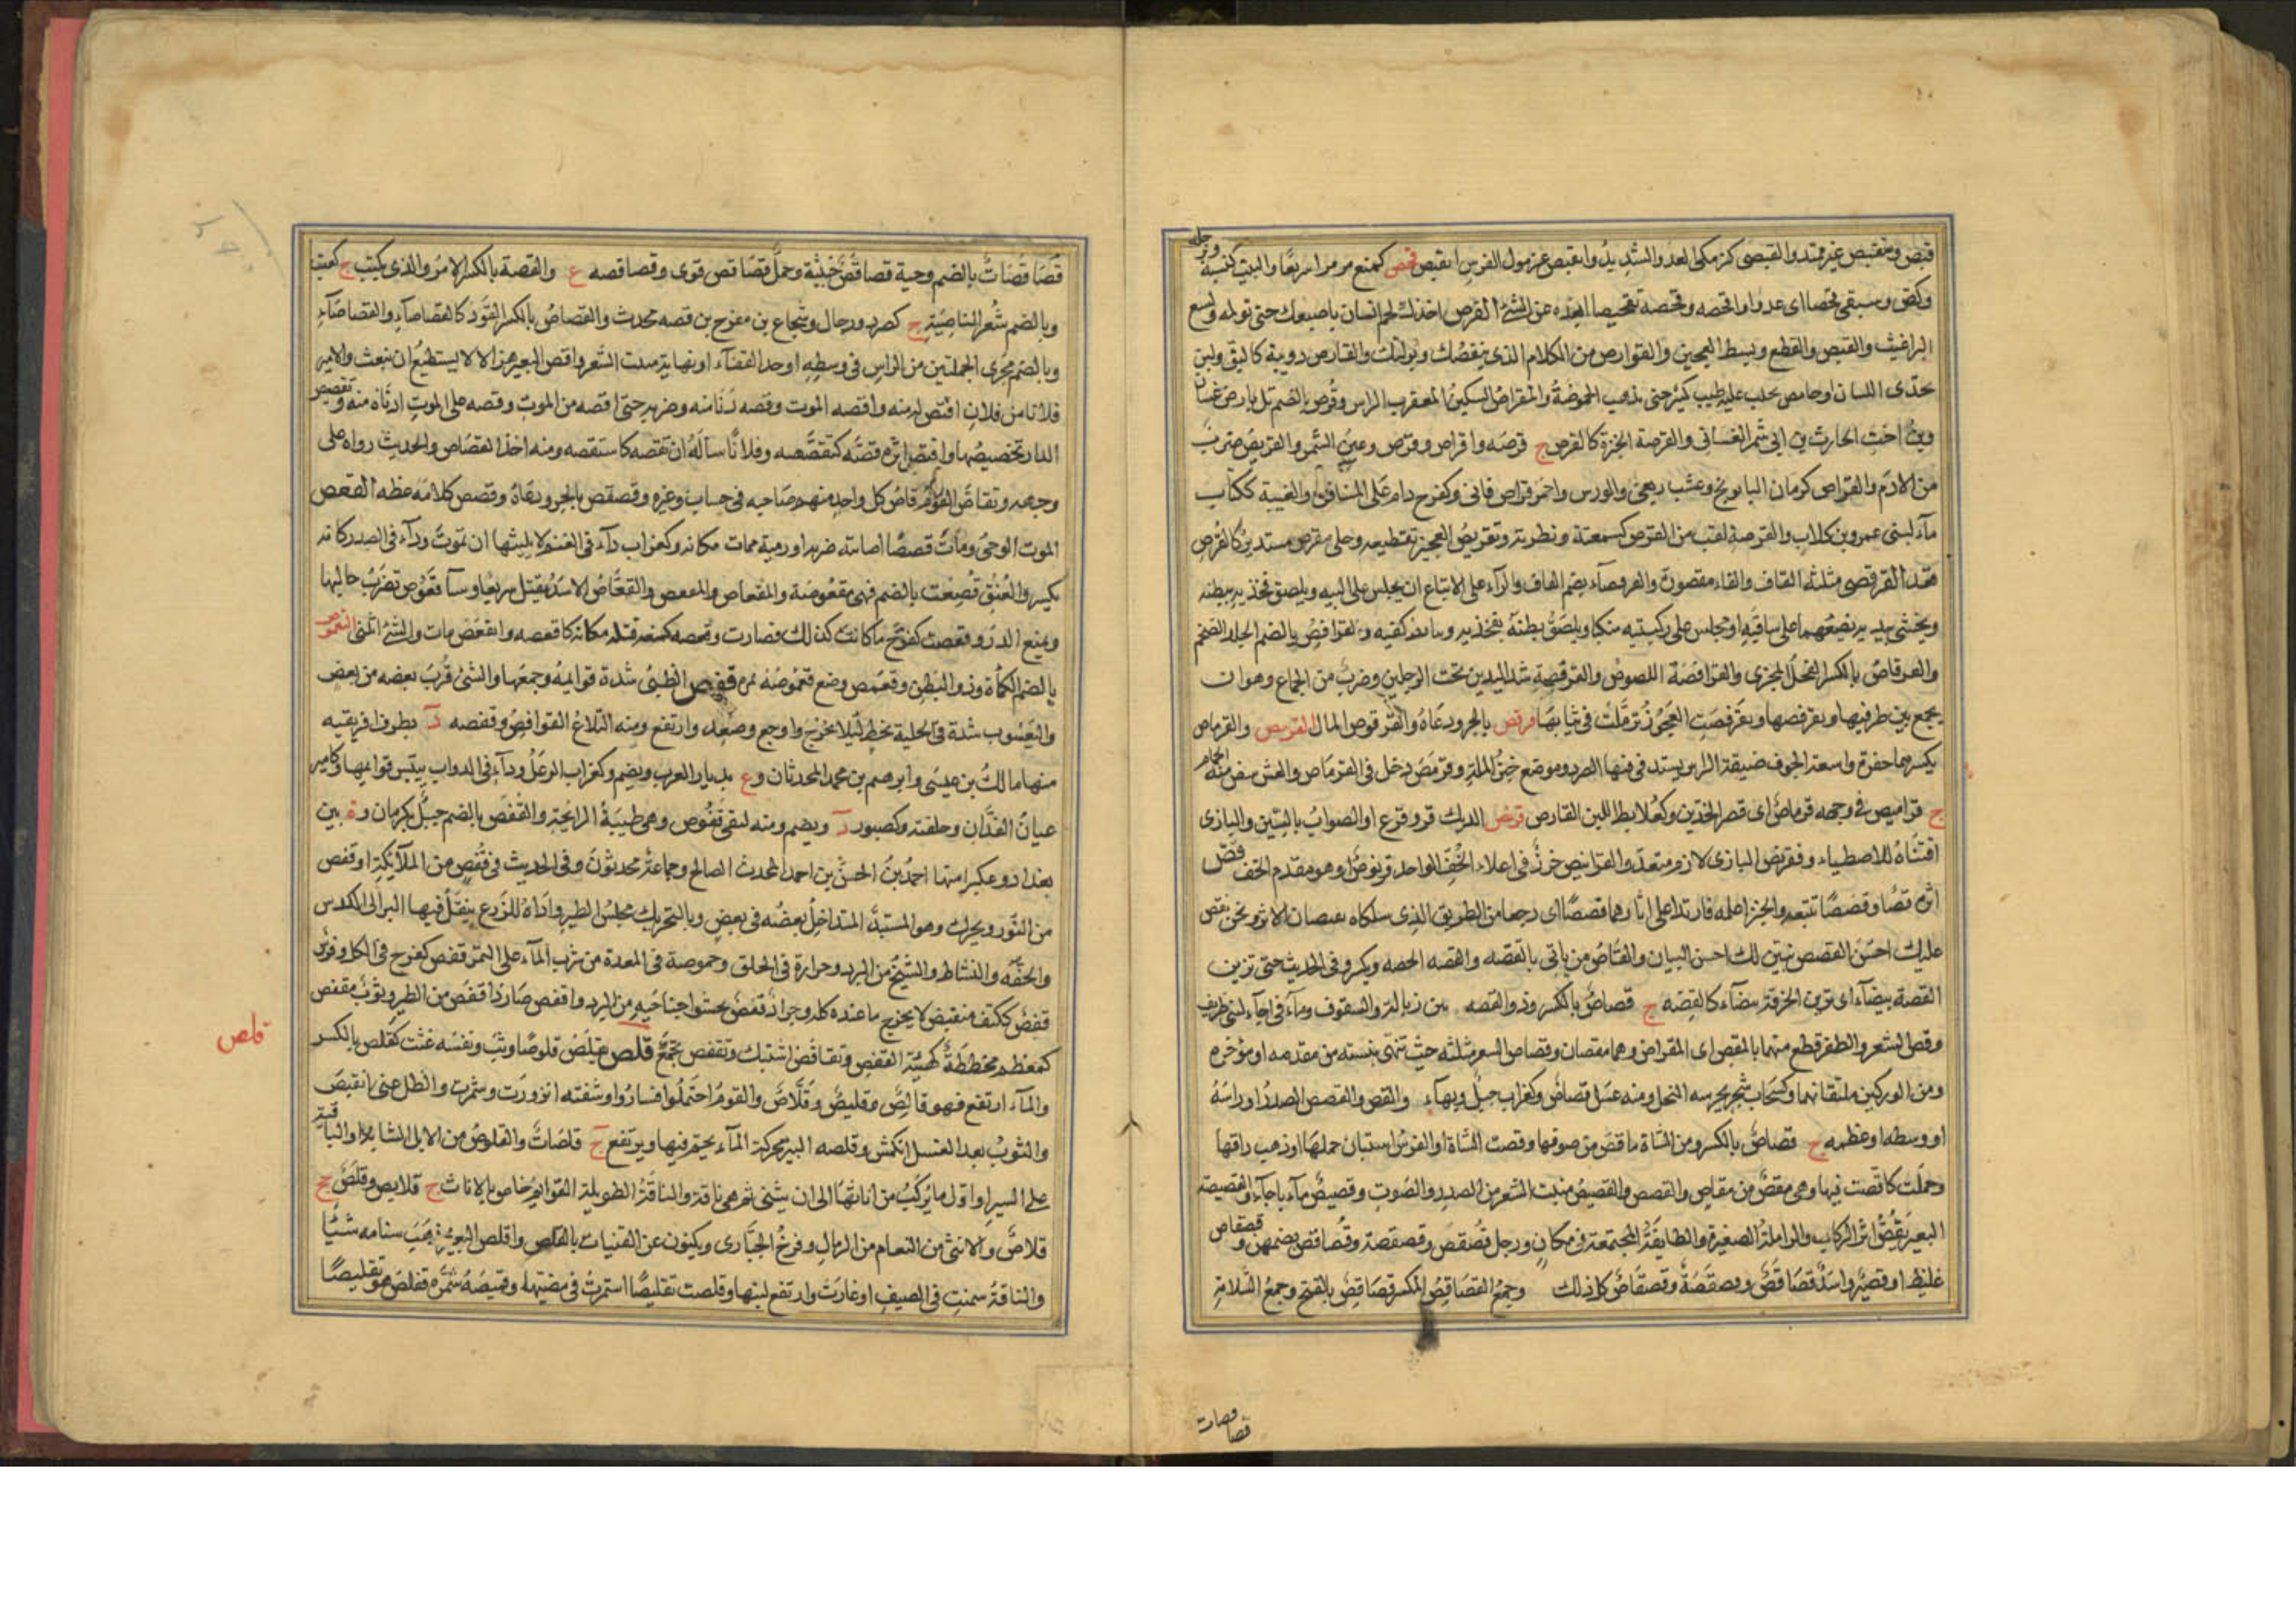 قبض ومنقبض غير ممتد والقبصى كزمكى العدو الشديد وانقبض غرمول الفرس انقبص قحص كمنع مر مرا سريعا والبيت كنسه
وكض وسبقنى قحصا اى عدوا واقحصه وقحصه تقحيصا ابعده عن الشئ القرص اخذك لحم انسان باصبعك حتى تولمه ولسع
البراغيث والقبض والقطع وبسط العجين والقوارص من الكلام التى ينغضك ويولمك والقارص دويبة كالبق ولبن
يحذى اللسان او حامض يحلب عليه حليب كثير حتى تذهب الحموضة والمقراص السكين المعقرب الراس وقرص بالضم تل بارض غسان
وبن اخت الحارث بن ابى شمر الغسانى والقرصة الخبزة كالقرص ج قرصه واقراص وقرص وعين الشمس والقريص ضرب
من الادم والقراص كرمان البابونج وعشب ربعى والورس واحمر قراص قانى وكفرح دام على المناقرة والغيبة ككتاب
ماء لبنى عمرو بن كلاب والقرصة لقب من القرص كسمعته ونظرته وتقريص العجين تقطيعه وحلى مقرص مستدير كالقرص
قعد القرفصى مثلثة القاف والفاء مقصورة والقرفصاء بضم القاف والراء على الاتباع ان يجلس على اليه ويلصق فخذيه ببطنه
ويحتبى بيديه يضعهما على ساقيه او يجلس على ركبتيه منكبا ويلصق بطنه بفخذيه ويتابط كفيه والقرافص بالضم الجلد الضخم
والقرفاص بالكسر الفحل المجزى والقرافصة اللصوص والقرفصة شد اليدين تحت الرجلين وضرب من الجماع وهو ان
يجمع بين طرفيها ويقرفصها وتقرفصت العجوز تزملت فى ثيابها قرقص بالجرو دعاه والقرقوص المال القرمص والقرماص
بكسرهما حفرة واسعة الجوف ضيقة الراس يستدفى فيها الصرد وموضع خبز الملة وقرمص دخل فى القرماص والعش يبيض فيه الحمام
ج قراميص فى وجهه قرماص اى قصر الخدين وكعلابط اللبن القارص قرنص الديك فر وقزع او الصواب بالسين والبازى
اقتناه للاصطياد وقرنص البازى لازم متعد والقرانيص خرز فى اعلاء الخف الواحد قرنوص او هو مقدم الخف قص
اثره قصا وقصصا تتبعه والخبر اعلمه فارتدا على اثارهما قصصا اى رجعا من الطريق الذى سلكاه يقصان الاثر ونحن نقص
عليك احسن القصص نبين لك احسن البيان والقاص من ياتى بالقصه والقصه الجصه ويكسر وفى الحديث حتى ترين
القصة بيضاء اى ترين الخرقة بيضاء كالقصه ج قصاص بالكسر وذو القصه بين زبالة والشقوق وماء فى اجاء لبنى طريف
وقص الشعر والظفر قطع منهما بالمقص اى المقراض وهما مقصان وقصاص الشعر مثلثه حيث تنتهى نبتته من مقدمه او موخره
ومن الوركين ملتقاهما وكسحاب شجر يجرسه النحل ومنه عسل قصاص وكغراب جبل وبهاء ع والقص والقصص الصدر او راسه
او وسطه او عظمه ج قصاص بالكسر ومن الشاة ما قص من صوفها وقصت الشاة او الفرس استبان حملها او ذهب وداقها
وحملت كاقصت فيها وهى مقص من مقاص والقصص والقصيص منبت الشعر من الصدر والصوت وقصيص ماء باجاء والقصيصة
البعير يقص اثر الركاب والزاملة الصغيرة والطايفة المجتمعة فى مكان ورجل قصقص وقصقصة وقصاقص بضمهن وقصقاص
غليظ او قصير واسد قصاقص وقصقصة وقصقاص كل ذلك وجمع القصاقص المكسر قصاقص بالفتح وجمع السلامة
قصاقصات
قصاقصات بالضم وحية قصاقص خبيثة وجمل قصاقص قوى وقصاقصه ع والقصة بالكسر الامر والذى يكتب ج كعنب
وبالضم شعر الناصية ج كصرد ورجال وشجاع بن مفرح بن قصه محدث والقصاص بالكسر القود كالقصاصاء والقصاصاء
وبالضم مجرى الجملين من الراس فى وسطه او حد القفاء او نهاية منبت الشعر واقص البعير هزالا لا يستطيع ان ينبعث والامير
فلانا من فلان اقتص له منه واقصه الموت وقصه دنا منه وضربه حتى اقصه من الموت وقصه على الموت ادناه منه وتقصيص
الدار تجصيصها واقتص اثره قصه كتقصصه وفلانا ساله ان يقصه كاستقصه ومنه اخذ القصاص والحديث رواه على
وجهه وتقاص القوم قاص كل واحد منهم صاحبه فى حساب وغيره وقصقص بالجرو دعاه وقصص كلامه عظه القعص
الموت الوحى ومات قعصا اصابته ضربة او رمية فمات مكانه وكغراب داء فى الغنم لا يلبثها ان تموت وداء فى الصدر كانه
يكسر والعنق قعصت بالضم فهى مقعوصة والمقعاص والمقعص والقعاص الاسد يقتل سريعا وشاة قعوص تضرب حالبها
وتمنع الدر وقعصت كفرح ما كانت كذلك فصارت وقعصه كمنعه قتله مكانه كاقعصه وانقعص مات والشئ انثنى القعموص
بالضم الكماة وذو البطن وقعمص وضع قعموصه بمره قفص الظبى شد قوايمه وجمعها والشئ قرب بعضه من بعض
واليعسوب شده فى الخلية بخيط ليلا يخرج واوجع وصعد وارتفع ومنه التلاع القوافص وقفصه د بطرف افريقيه
منها مالك بن عيسى وابرهيم بن محمد المحدثان وع بديار العرب ويضم وكغراب الوعل وداء فى الدواب ييبس قوايمها وكامير
عيان الفدان وحلقته وكصبور د ويضم ومنه لبنى قفوص وهى طيبة الرايحة والقفص بالضم جبل بكرمان وة بين
بغداد وعكبرا منها احمد بن الحسن بن احمد المحدث الصالح وجماعة محدثون وفى الحديث فى قفص من الملائكة او قفص
من النور ويحرك وهو المستبد المتداخل بعضه فى بعض وبالتحريك محبس الطير واداة للزرع ينقل فيها البر الى الكدس
والخفه والنشاط والتشنج من البرد وحرارة فى الحلق وحموضة فى المعدة من شرب الماء على التمر قفص كفرح فى الكل وفرس
قفص ككتف منقبض لا يخرج ما عنده كله وجراد قفص يحسو جناحيه من البرد واقفص صار ذا قفص من الطير وثوب مقفص
كمعظم مخططة كهيئة القفص وتقافص اشتبك وتقفص تجمع قلص يقلص قلوصا وثب ونفسه غثت كقلص بالكسر
قلص
والماء ارتفع فهو قالص وقليص وقلاص والقوم احتملوا فساروا وشفته انزوت وشمرت والظل عنى انقبض
والثوب بعد الغسل انكمش وقلصه البير محركة الماء يجتمع فيها ويرتفع ج قلصات والقلوص من الابل الشابة او الباقية
على السير او اول ما يركب من اناثها الى ان يثنى ثم هى ناقة والناقة الطويلة القوايم خاص بالاناث ج قلايص وقلص جج
قلاص والانثى من النعام من الرمال وفرخ الحبارى ويكنون عن الفتيات بالقلص واقلص البعير ظهر سنامه شيئا
والناقة سمنت فى الصيف او غارت وارتفع لبنها وقلصت تقليصا استمرت فى مضيتها وقميصه شمره فقلص هو تقليصا